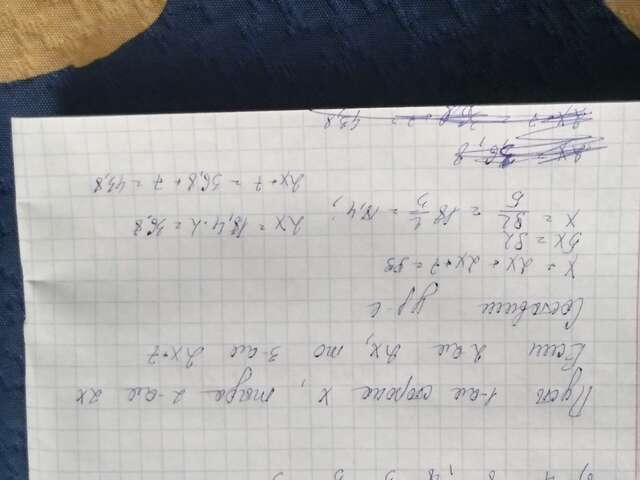 Пусть 1-ая сторона x, тогда 2-ая 2x
Если 2-ая 2x, то 3-ая 2x+7
Составим ур-е
x + 2x + 2x+7 = 99
5x = 92
x = 92/5 = 18 2/5 = 18,4; 2x = 18,4·2 = 36,8
2x+7 = 36,8 + 7 = 43,8
2x = 36,8
2x+7 = 43,8